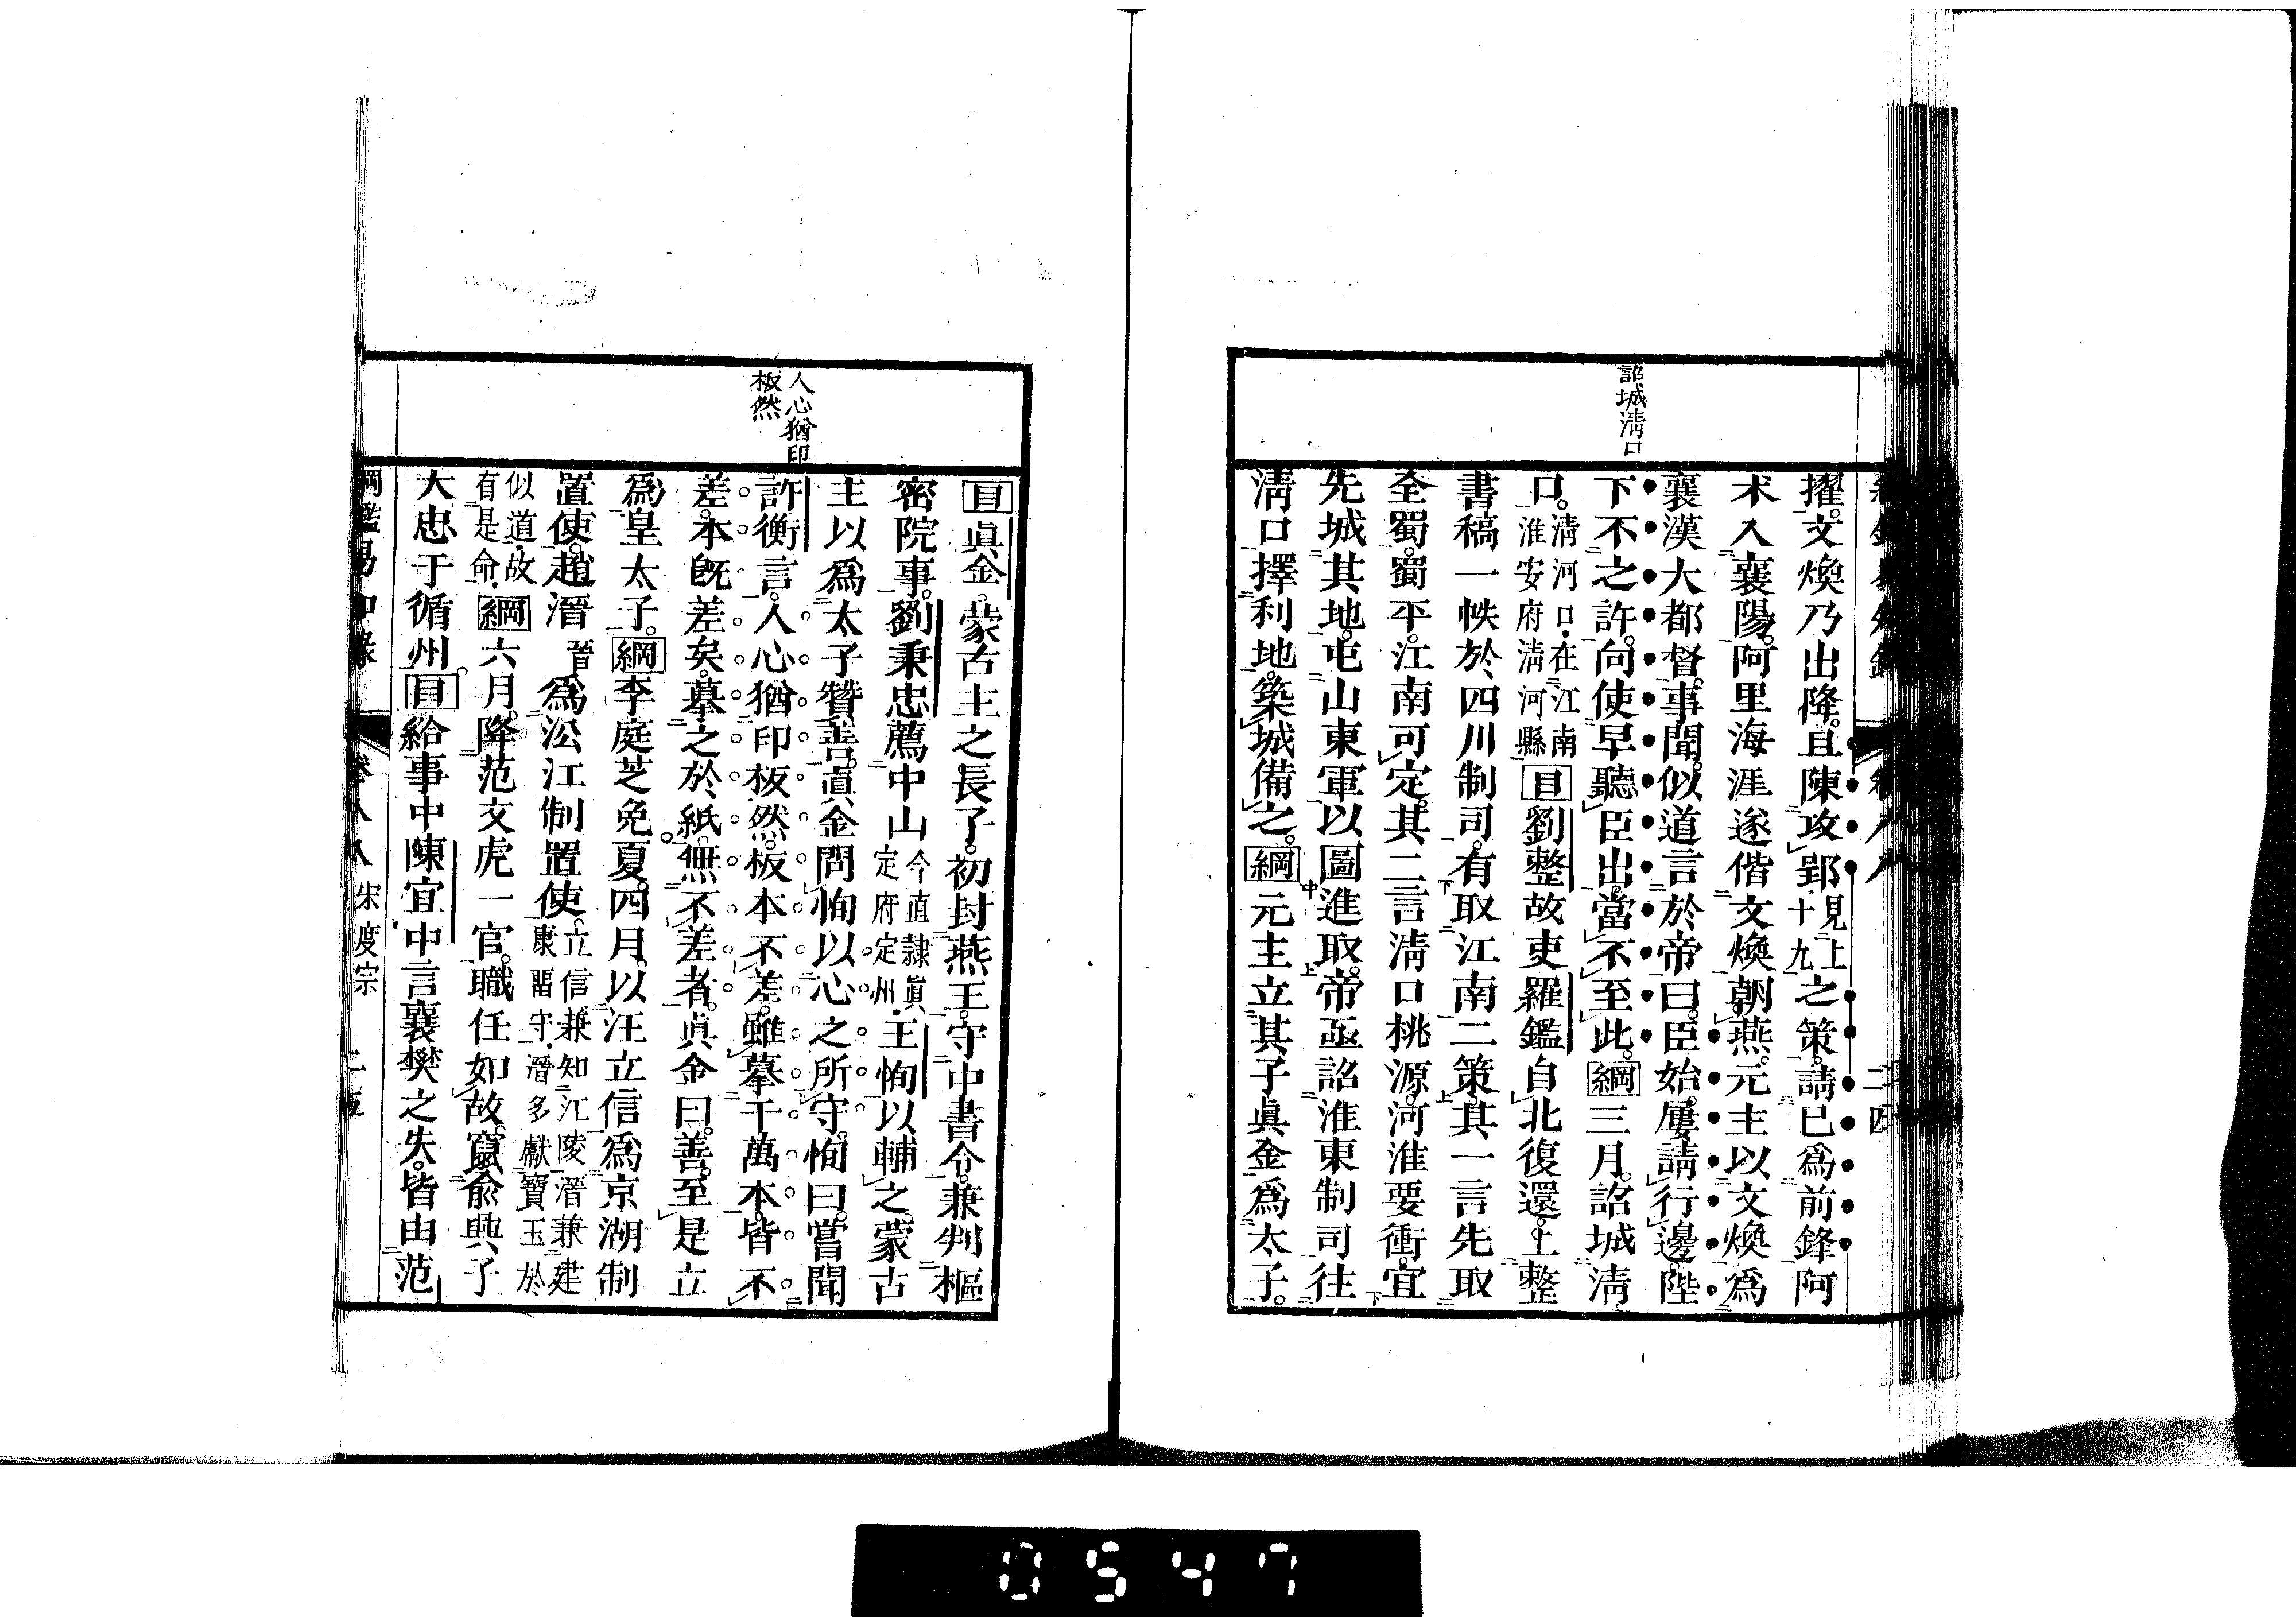 詔城淸口
擢。文煥乃出降。且陳攻郢見上十九之策。請已爲前鋒阿
朮入襄陽。阿里海涯遂偕文煥朝燕。元主以文煥爲
襄漢大都督。事聞。似道言於帝曰。臣始屢請行邊。陛
下不之許。向使早聽臣出。當不至此。綱三月。詔城淸
口。淸河口、在江南淮安府淸河縣目劉整故吏羅鑑自北復還。上整
書稿一帙於四川制司。有取江南二策。其一言先取
全蜀。蜀平。江南可定。其二言淸口桃源。河淮要衝。宜
先城其地。屯山東軍以圖進取。帝亟詔淮東制司往
淸口擇利地。築城備之。綱元主立其子眞金爲太子。
人心猶印
板然
目眞金。蒙古主之長子。初封燕王。守中書令。兼判樞
密院事。劉秉忠薦中山今直隷眞定府定州王恂以輔之。蒙古
主以爲太子贊善。眞金問恂以心之所守。恂曰。嘗聞
許衡言。人心猶印板然。板本不差。雖摹千萬本。皆不
差。本旣差矣。摹之於紙。無不差者。眞金曰。善。至是立
爲皇太子。綱李庭芝免。夏。四月。以汪立信爲京湖制
置使。趙溍晉爲㳂江制置使。立信兼知江陵、溍兼建康留守、溍多獻寶玉於
似道、故有是命、綱六月。降范文虎一官。職任如故。竄俞興子
大忠于循州。目給事中陳宜中言襄樊之失。皆由范
綱鑑易知錄 卷八八 宋度宗 二五
0547